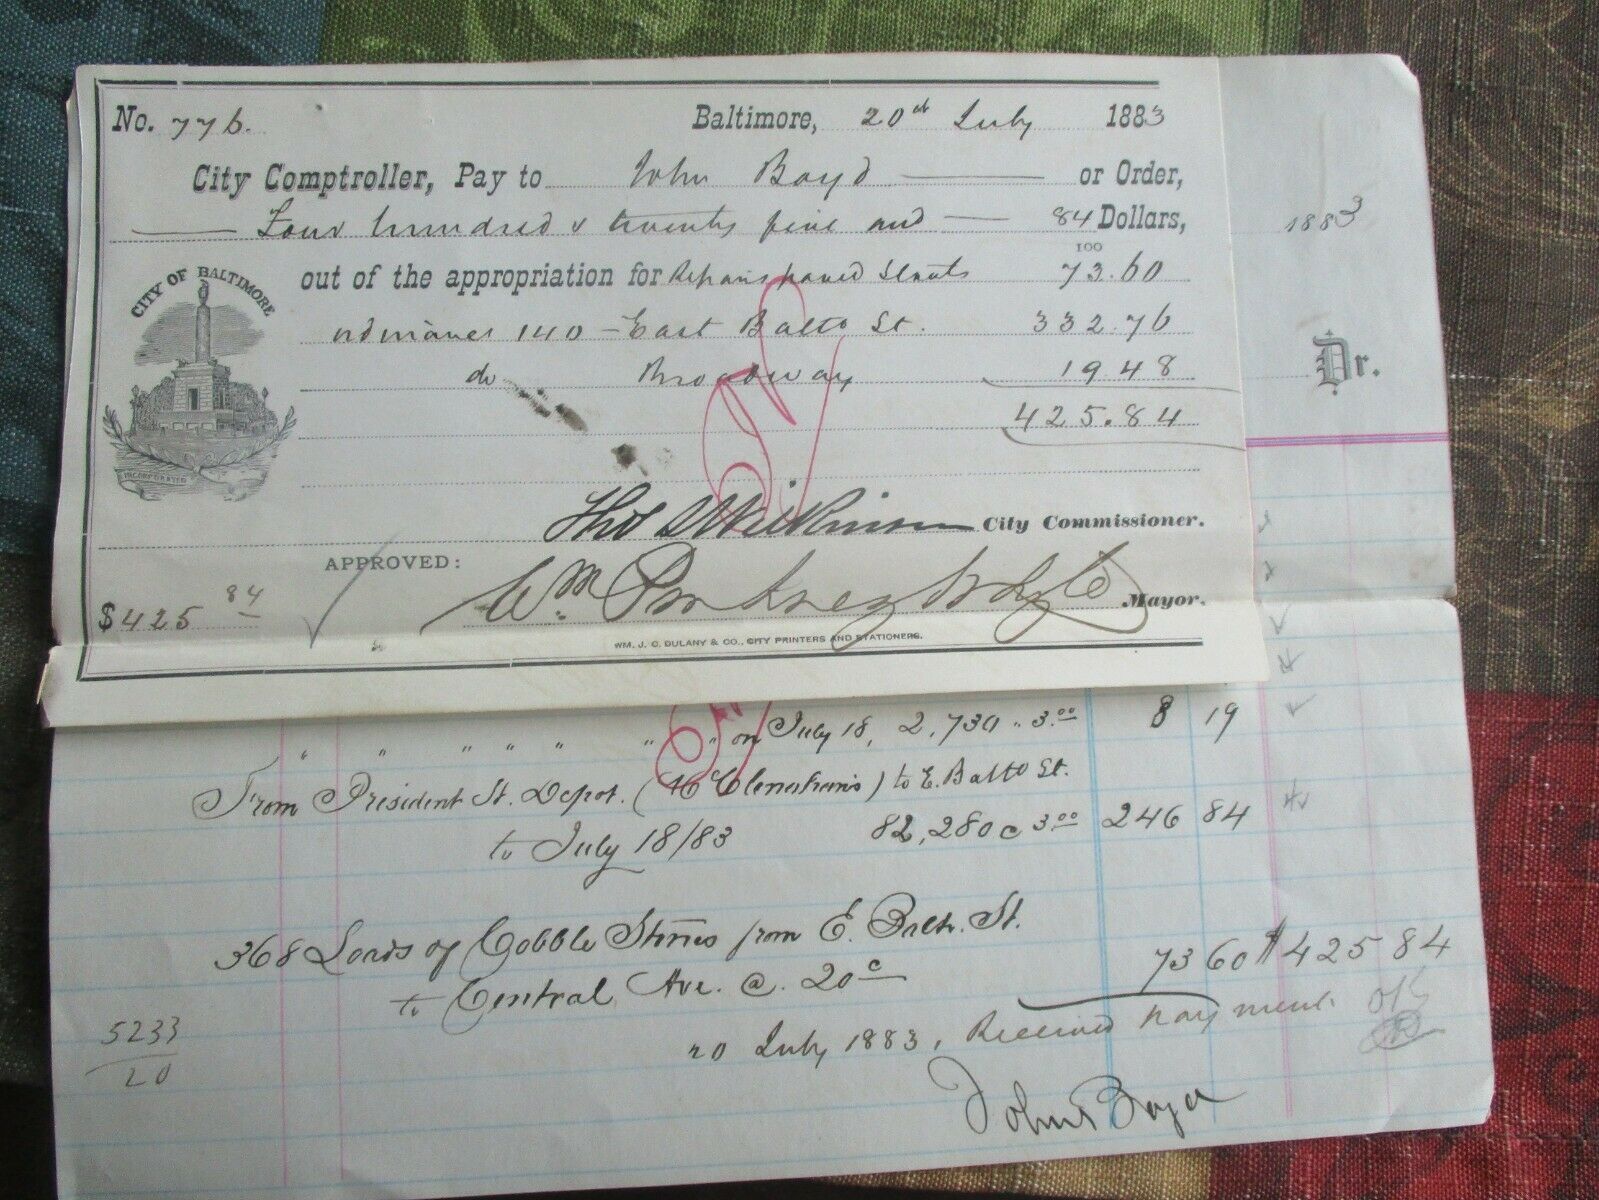 No. 776. Baltimore, 20th July 1883
City Comptroller, Pay to John Boyd or Order,
Four hundred & twenty five and 84/100 Dollars,
1883
CITY OF BALTIMORE
out of the appropriation for Repairs paved Streets 73.60
ordinance 140 - East Balto St. 332.76
do Broadway 19 48
Dr.
425.84
INCORPORATED
Thos S Wilkinson City Commissioner.
APPROVED:
$425 84 Wm Pinkney Whyte Mayor.
WM. J. C. DULANY & CO., CITY PRINTERS AND STATIONERS.
" " " " " " " on July 18, 2,730 " 3.00 8 19
From President St. Depot. (McClenahan's) to E. Balto St.
to July 18/83 82,280 @ 3.00 246 84
368 Loads of Cobble Stones from E. Balto. St.
to Central Ave. @. 20c 73 60 $425 84
5233
20
20 July 1883, Received payment OK
John Boyd